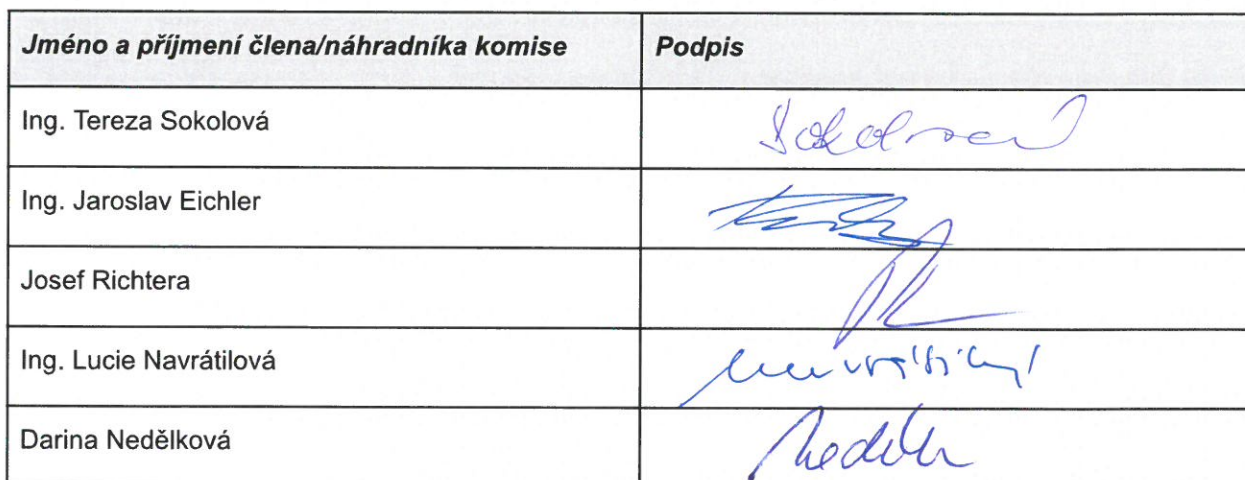 Jméno a příjmení člena/náhradníka komise Podpis
Ing. Tereza Sokolová Sokolová
Ing. Jaroslav Eichler
Josef Richtera
Ing. Lucie Navrátilová
Darina Nedělková